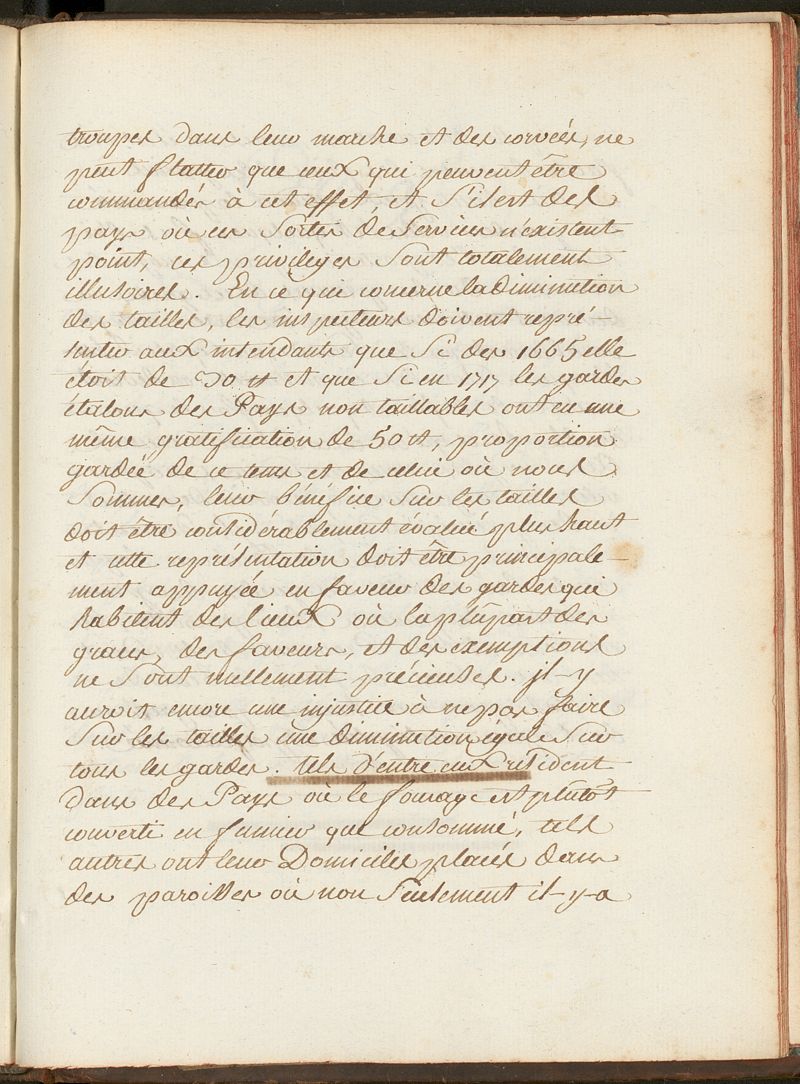 troupes dans leur marche et des corvées, ne
peut flatter que ceux qui peuvent être
commandés à cet effet, et S'il est des
pays où ces Sortes de Services n'existent
point, ces privileges Sont totalement
illusoires. En ce qui concerne la diminution
des tailles, les inspecteurs doivent repré-
senter aux intendants que Si dès 1665 elle
étoit de 30 ₶ et que Si en 1717 les gardes
étalons des Pays non taillables ont eu une
même gratification de 50 ₶, proportion
gardée de ce tems et de celui où nous
Sommes, leur bénéfice Sur les tailles
doit être considérablement évalué plus haut
et cette représentation doit être principale-
ment appuyée en faveur des gardes qui
habitent des lieux où la plûpart des
graces, des faveurs, et des exemptions
ne Sont nullement précieuses. jl-y
auroit encore une injustice à ne pas faire
Sur les tailles une diminution égale Sur
tous les gardes. tels d'entre eux résident
dans des Pays où le fourage est plutôt
converti en fumier que consommé, tels
autres ont leur Domiciles placés dans
des paroisses où non Seulement il-y-a